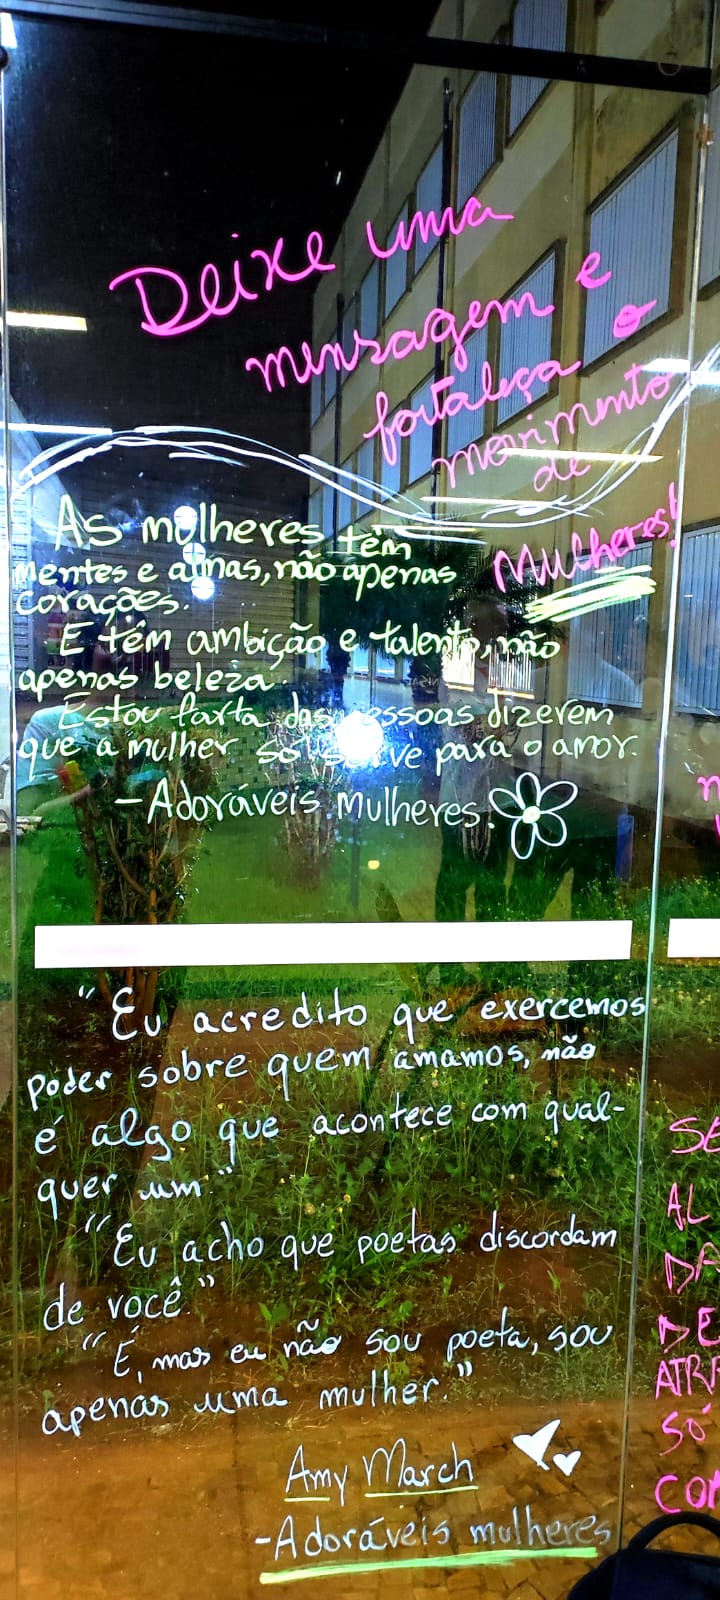 Deixe uma
mensagem e
fortaleça o
movimento
de
Mulheres!
As mulheres têm
mentes e almas, não apenas
corações.
E têm ambição e talento, não
apenas beleza.
Estou farta das pessoas dizerem
que a mulher só serve para o amor.
- Adoráveis mulheres.
"Eu acredito que exercemos
poder sobre quem amamos, não
é algo que acontece com qual-
quer um."
"Eu acho que poetas discordam
de você."
"É, mas eu não sou poeta, sou
apenas uma mulher."
Amy March
- Adoráveis mulheres
SE
AL
DA
DE
ATRA
SÓ
COM